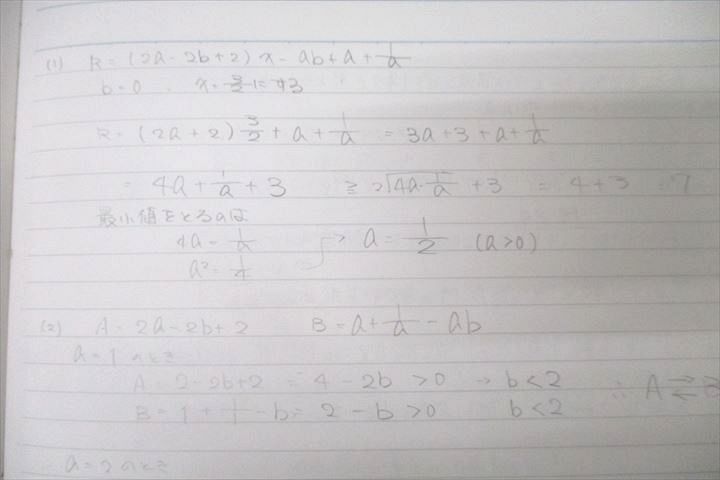 (1) R = (2a - 2b + 2) x - ab + a + 1/a
b = 0
R = (2a + 2) 3/2 + a + 1/a = 3a + 3 + a + 1/a
= 4a + 1/a + 3 ≧ 2√(4a・1/a) + 3 = 4 + 3 = 7
最小値をとるaは
4a = 1/a → a = 1/2 (a > 0)
a² = 1/4
(2) A = 2a - 2b + 2 B = a + 1/a - ab
a = 1 のとき
A = 2 - 2b + 2 = 4 - 2b > 0 → b < 2 ∴ A ⇄ B
B = 1 + 1/1 - b = 2 - b > 0 b < 2
a = 2 のとき